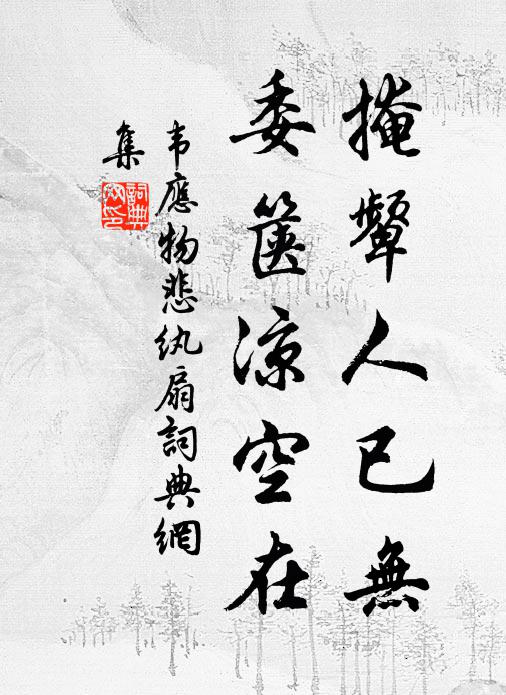 掩顰人已無
委篋涼空在
韦應物悲纨扇詞典網
集
詞典
網印